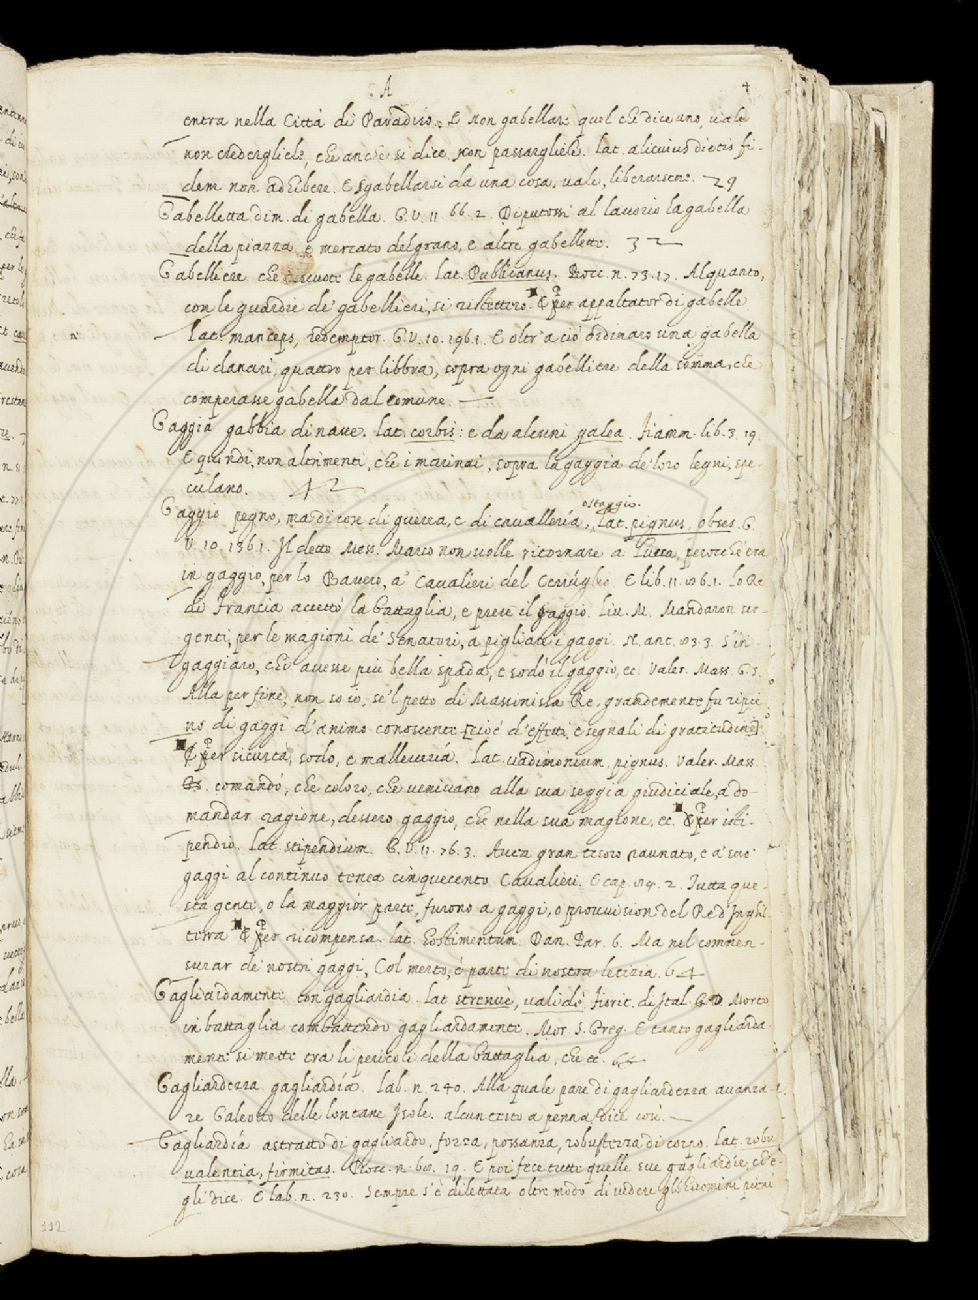 GA 4
entra nella Città di Paradiso. E Non gabellare quel che dice uno, vale
non credergliele, che anche si dice. Non passargliele. lat. alicuius dictis fi-
dem non adhibere. E sgabellarsi da una cosa, vale, liberarsene. 29
Gabelletta dim. di gabella. G.V. 11. 66. 2. Diputossi al lavorio la gabella
della piazza e mercato del grano, e altre gabellette. 32
Gabelliere che riscuote le gabelle. lat. Publicanus. Bocc. n. 73. 17. Alquanto,
con le guardie de' gabellieri, si ristettero. & per appaltator di gabelle
lat. manceps, redemptor. G.V. 10. 196. 1. E oltr' a ciò ordinaro una gabella
di danari, quattro per libbra, sopra ogni gabelliere della somma, che
comperasse gabella dal comune.
Gaggia gabbia di nave. lat. corbis: e da alcuni galea. Fiamm. lib. 3. 19.
E quindi, non altrimenti, che i marinai, sopra la gaggia de' loro legni, spe-
culano. 42
ostaggio.
Gaggio pegno, ma dicon di guerra, e di cavalleria, Lat. pignus, obses. G.
V. 10. 136. 1. Il detto Mess. Marco non volle ritornare a Lucca, perocch' era
in gaggio, per lo Bavero, a' Cavalieri del Ceruglio. E lib. 11. 86. 1. Lo Re
di Francia accettò la battaglia, e prese il gaggio. Liv. M. Mandaron ser-
genti, per le magioni de' Senatori, a pigliare i gaggi. N. ant. 83. 3. S'in-
gaggiaro, chi avesse più bella spada, e sodò il gaggio, ec. Valer. Mass. G. S.
Alla per fine, non so io, se 'l petto di Massinissa Re, grandemente fu ripie-
no di gaggi d'animo conoscente [cioè d'effetti, e segnali di gratitudine]
& per sicurtà, sodo, e malleveria. Lat. vadimonium, pignus. Valer. Mass.
comandò, che coloro, che venivano alla sua seggia giudiciale, a do-
mandar ragione, dessero gaggio, che nella sua magione, ec. & per isti-
pendio. Lat. stipendium. G.V. 11. 76. 3. Avea gran tesoro raunato, e a' suo'
gaggi al continuo tenea cinquecento Cavalieri. E cap. 84. 2. Tutta que-
sta gente, o la maggior parte, furono a gaggi, o provvisione del Re d'Inghil-
terra & per ricompensa. lat. Dan. Par. 6. Ma nel commen-
surar de' nostri gaggi, Col merto, è parte di nostra letizia. 64
Gagliardamente con gagliardia. lat. strenuè, validè. Fiorit. d'Ital. Morto
in battaglia combattendo gagliardamente. Mor. S. Greg. E tanto gagliarda-
mente si mette tra li pericoli della battaglia, che ec.
Gagliardezza gagliardía. Lab. n. 240. Alla quale pare di gagliardezza avanza-
re Galeotto delle lontane Isole. alcun testo a penna, dice così.
Gagliardía astratto di gagliardo, forza, possanza, robustezza di corpo. Lat. robur
valentia, firmitas. Bocc. n. 60. 19. E poi fece tutte quelle sue gagliardie, ch'e-
gli dice. E Lab. n. 230. Sempre s'è dilettata oltre modo di vedere gli huomini pieni
112